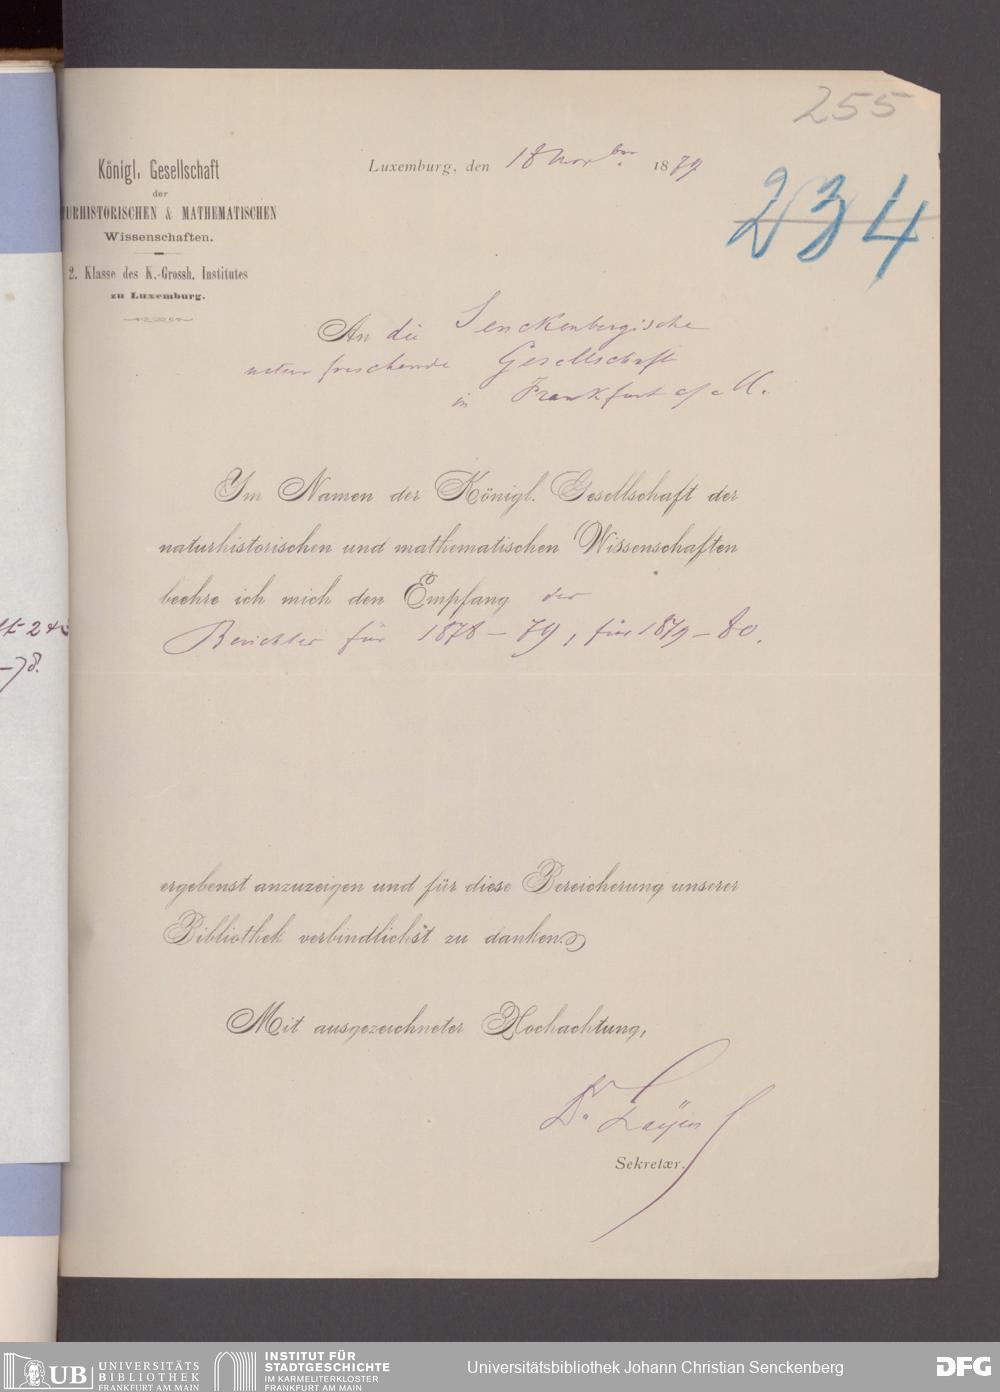 255
Königl. Gesellschaft
der
URHISTORISCHEN & MATHEMATISCHEN
Wissenschaften.
2. Klasse des K.-Grossh. Institutes
zu Luxemburg.
Luxemburg, den 18 Novbre. 1879
234
An die Senckenbergische
naturforschende Gesellschaft
in Frankfurt a/M.
Im Namen der Königl. Gesellschaft der
naturhistorischen und mathematischen Wissenschaften
beehre ich mich den Empfang der
Berichte für 1878–79, für 1879–80.
ergebenst anzuzeigen und für diese Bereicherung unserer
Bibliothek verbindlichst zu danken.
Mit ausgezeichneter Hochachtung,
Dr.
Sekretær.
–78.
UB UNIVERSITÄTS
BIBLIOTHEK
FRANKFURT AM MAIN
INSTITUT FÜR
STADTGESCHICHTE
IM KARMELITERKLOSTER
FRANKFURT AM MAIN
Universitätsbibliothek Johann Christian Senckenberg
DFG